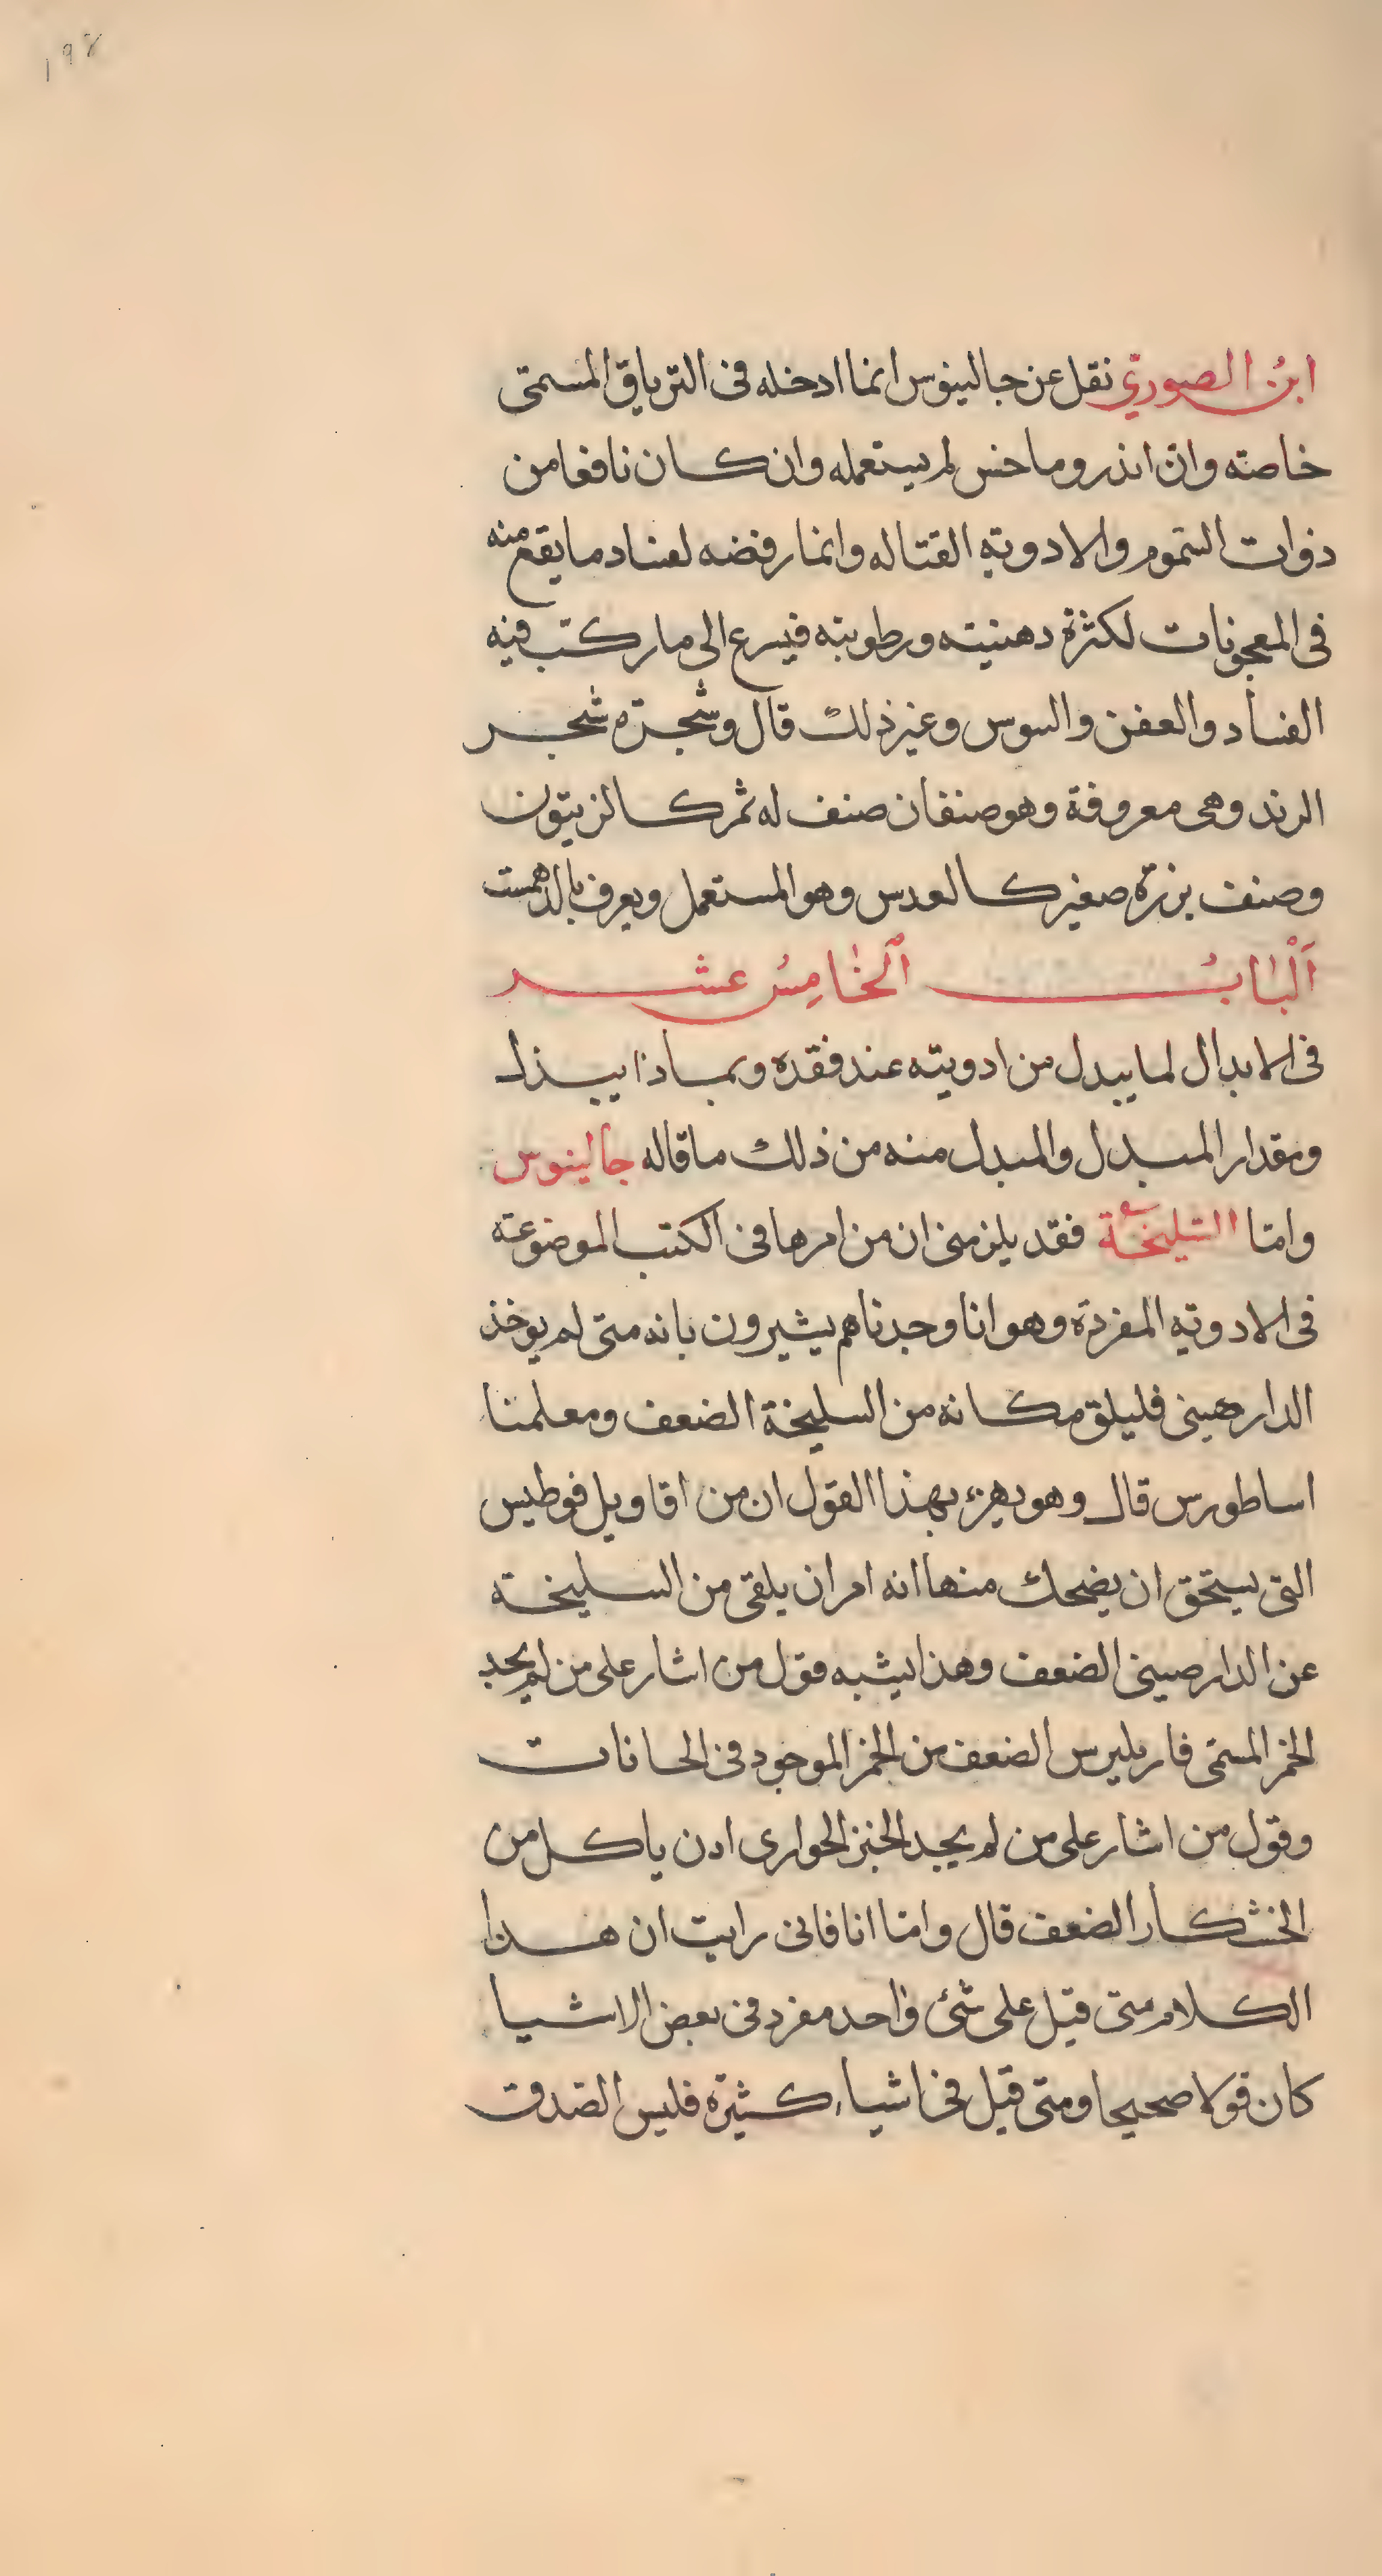 ١٩٨
ابنُ الصوري نقل عن جالينوس انما ادخله فى الترياق المسمّى
خاصته وانّ اندروماخس لم يستعمله وان كان نافعا من
ذوات السّموم والادوية القتاله وانما رفضه لفساد ما يقع منه
فى المعجونات لكثرة دهنيته ورطوبته فيسرع الى ما ركب فيه
الفساد والعفن والسوس وغير ذلك قال وشجرته شجر
الرند وهى معروفة وهو صنفان صنف له ثمر كالزيتون
وصنف بزره صغير كالعدس وهو المستعمل ويعرف بالدهمست
اَلْبَابُ اَلخَامِسُ عشر
فى الابدال لما يبدل من ادويته عند فقده وبماذا يبدل
ومقدار المبدل والمبدل منه من ذلك ما قاله جالينوس
وامّا السّليخة فقد يلزمنى ان من امرها فى الكتب الموضوعة
فى الادويه المفردة وهو انا وجدناهم يشيرون بانه متى لم يوخذ
الدارصينى فليلق مكانه من السليخة الضعف ومعلمنا
اساطورس قال وهو يهزء بهذا القول ان من اقاويل قوطيس
التى يستحق ان يضحك منها انه امر ان يلقى من السليخة
عن الدارصينى الضعف وهذا يشبه قول من اشار على من لم يجد
الخمر المسمى فاربليرس الضعف من الخمر الموجود فى الحانات
وقول من اشار على من لم يجد الخبز الحوارى ادن ياكل من
الخشكار الضعف قال وامّا انا فانى رايت ان هذا
الكلام متى قيل على شئ واحد مفرد فى بعض الاشيا
كان قولا صحيحا ومتى قيل فى اشياء كثيرة فليس الصّدق